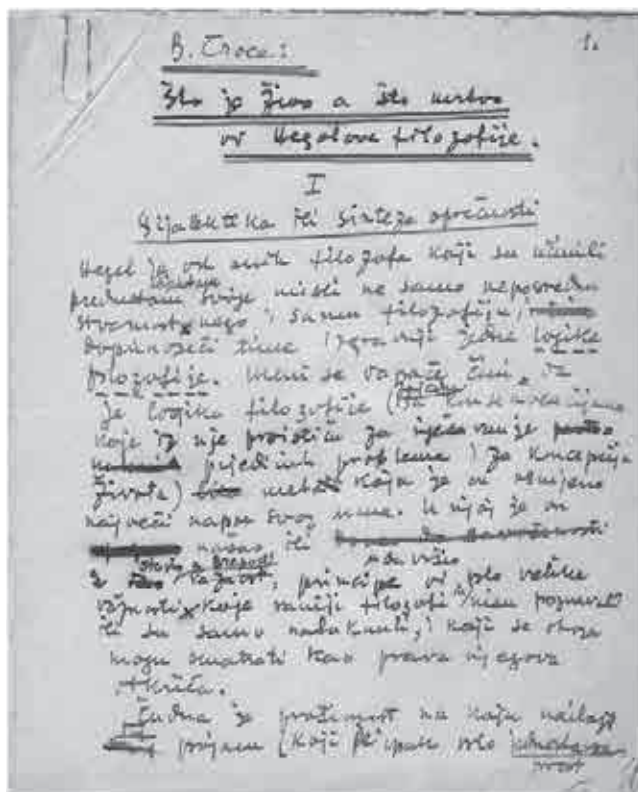 B. Croce:
1.
Što je živo a što mrtvo
od Hegelove filozofije.
I
Dijalektika ili sinteza oprečnosti
Hegel je od onih filozofa koji su učinili
predmetom svoje misli ne samo neposrednu
stvarnost nego i samu filozofiju,
doprinoseći time izgradnji jedne logike
filozofije. Meni se dapače čini, da
je logika filozofije (sa konsekvencijama
koje iz nje proističu za rješavanje
pojedinih problema i za koncepciju
života) meta koja je on usmjerio
najveći napor svog uma. U njoj je on
našao ili
principe vrlo velike
važnosti koje raniji filozofi nisu poznavali
ili su samo nadaknuli, i koji se stoga
mogu smatrati kao prava njegova
otkrića.
Čudna je na koju nailazi
prijem (koji je ipak vrlo jednostavan